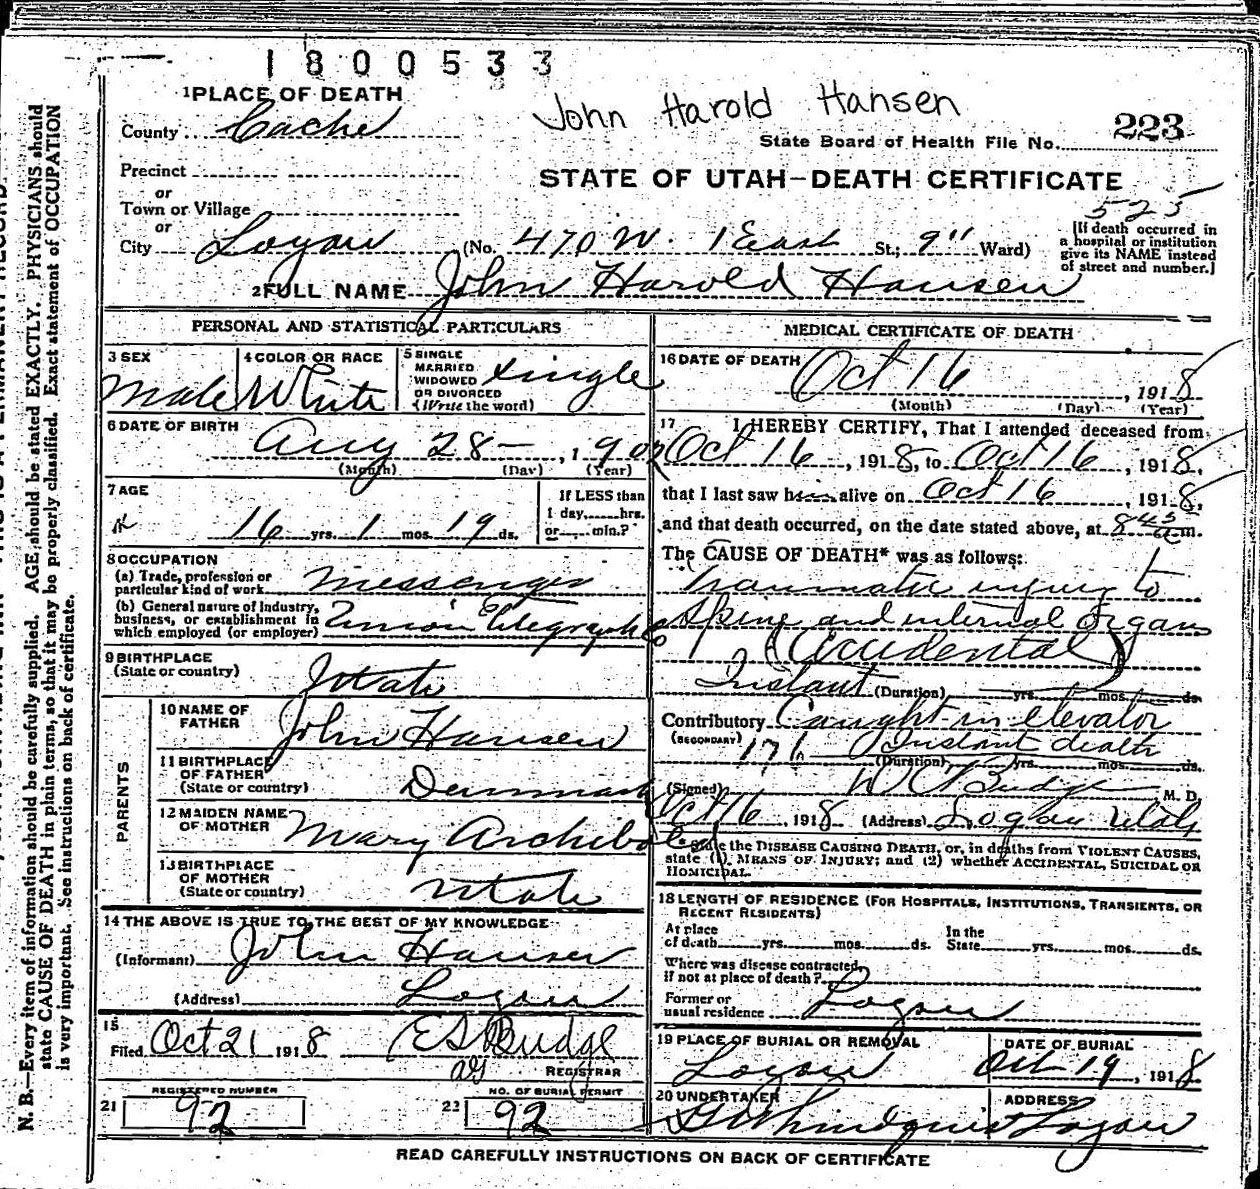 1800533
1 PLACE OF DEATH
John Harold Hansen
County Cache
State Board of Health File No. 223
Precinct
or
STATE OF UTAH—DEATH CERTIFICATE
Town or Village
or
525
City Logan (No. 470 W. 1 East St.; 9" Ward)
[If death occurred in a hospital or institution give its NAME instead of street and number.]
2 FULL NAME John Harold Hansen
PERSONAL AND STATISTICAL PARTICULARS
3 SEX Male
4 COLOR OR RACE White
5 SINGLE MARRIED WIDOWED OR DIVORCED (Write the word) single
6 DATE OF BIRTH Aug 28—, 1902
(Month) (Day) (Year)
7 AGE 16 yrs. 1 mos. 19 ds.
If LESS than 1 day,......hrs. or......min.?
8 OCCUPATION
(a) Trade, profession or particular kind of work messenger
(b) General nature of industry, business, or establishment in which employed (or employer) Union Telegraph Co
9 BIRTHPLACE (State or country) Utah
PARENTS
10 NAME OF FATHER John Hansen
11 BIRTHPLACE OF FATHER (State or country) Denmark
12 MAIDEN NAME OF MOTHER Mary Archibald
13 BIRTHPLACE OF MOTHER (State or country) Utah
14 THE ABOVE IS TRUE TO THE BEST OF MY KNOWLEDGE
(Informant) John Hansen
(Address) Logan
15 Filed Oct 21 1918 E S Budge
REGISTRAR
REGISTERED NUMBER
21 92
NO. OF BURIAL PERMIT
22 92
MEDICAL CERTIFICATE OF DEATH
16 DATE OF DEATH Oct 16, 1918
(Month) (Day) (Year)
17 I HEREBY CERTIFY, That I attended deceased from
Oct 16, 1918, to Oct 16, 1918,
that I last saw him alive on Oct 16, 1918,
and that death occurred, on the date stated above, at 8 45 a m.
The CAUSE OF DEATH* was as follows:
Traumatic injury to
spine and internal organs
(Accidental)
Instant (Duration) yrs. mos. ds.
Contributory Caught in elevator
(SECONDARY) 176 Instant death
(Duration) yrs. mos. ds.
(Signed) W C Budge M. D.
Oct 16, 1918 (Address) Logan Utah
State the DISEASE CAUSING DEATH, or, in deaths from VIOLENT CAUSES, state (1) MEANS OF INJURY; and (2) whether ACCIDENTAL, SUICIDAL OR HOMICIDAL.
18 LENGTH OF RESIDENCE (FOR HOSPITALS, INSTITUTIONS, TRANSIENTS, OR RECENT RESIDENTS)
At place of death yrs. mos. ds. In the State yrs. mos. ds.
Where was disease contracted, if not at place of death?
Former or usual residence Logan
19 PLACE OF BURIAL OR REMOVAL Logan
DATE OF BURIAL Oct 19, 1918
20 UNDERTAKER
ADDRESS Logan
READ CAREFULLY INSTRUCTIONS ON BACK OF CERTIFICATE
N. B.—Every item of information should be carefully supplied. AGE should be stated EXACTLY. PHYSICIANS should
state CAUSE OF DEATH in plain terms, so that it may be properly classified. Exact statement of OCCUPATION
is very important. See instructions on back of certificate.